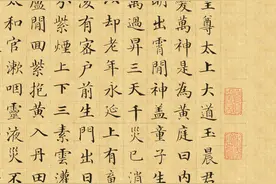 尊太上大道玉晨君
變萬神是為黃庭曰內
出霄間神蓋童子生
萬過昇三天千災已消
以却老年永延上有魂
後有密戶前生門出日
紫煙上下三素雲灌
廬間迴紫抱黃入丹田
太和官漱咽靈液災不